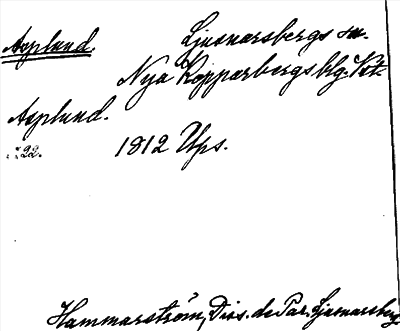 Asplund. Ljusnarsbergs sn.
Nya Kopparbergs blg. Vstm.
Asplund.
22. 1812 Ups.
Hammarström, Diss. de Par. Ljusnarsberg